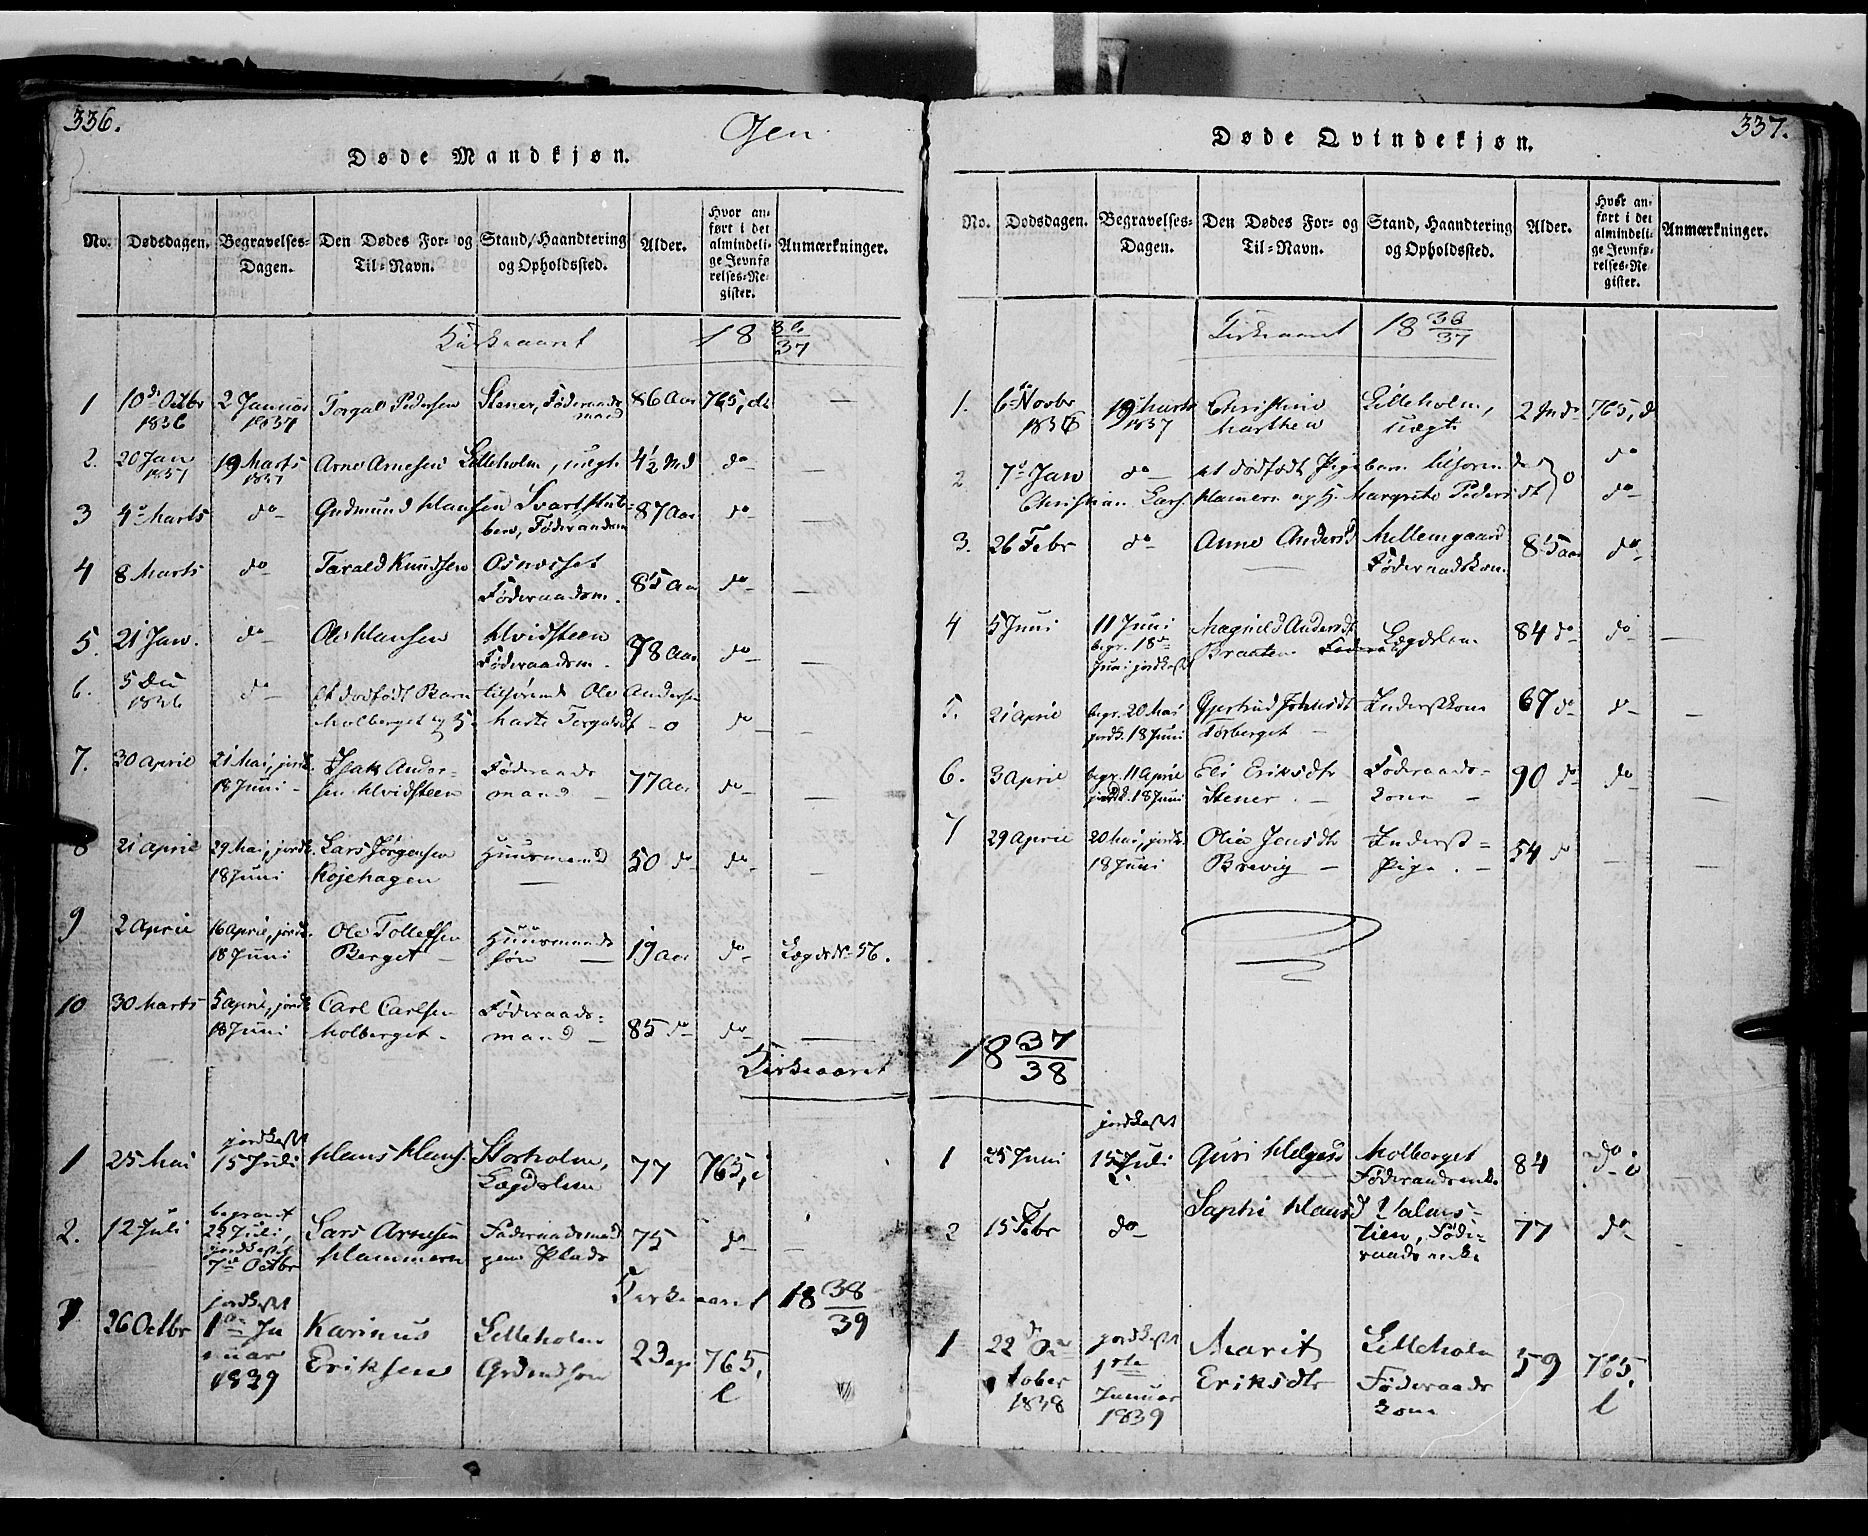 336.
Øien
Døde Mandkjøn.
No. Dødsdagen. Begravelses-Dagen. Den Dødes For- og Til-Navn. Stand, Haandtering og Opholdssted. Alder. Hvor anført i det almindelige Jevnførelses-Register. Anmærkninger.
Kirkeaaret 18 36/37
1 10de Octbr 1836 2 Januar 1837 Torgal Pedersen Stener, Føderaadsmand 86 Aar 765, d.
2. 20 Jan 1837 19 Marts 1837 Arne Arnesen Lilleholm, uægte 4½ Md do
3 4de Marts do Gudmund Hansen Svartstubben, Føderaadsm 87 Aar do
4 8 Marts do Tarald Knudsen Osnæsset Føderaadsm. 85 Aar do
5. 21 Jan. do Ole Hansen Hvidsteen Føderaadsm. 78 Aar do
6. 5 Dec 1836 do et dødfødt Barn tilhørende Ole Andersen
Molberget og H. Marte Torgalsdt - o do
7. 30 April 21 Mai, jordk. 18 Juni Isak Andersen Hvidsteen Føderaadsmand 77 Aar do
8 21 April 29 Mai, jordk. 18 Juni Lars Jørgensen Kojehagen Huusmand 50 do do
9 2 April 16 April, jordk. 18 Juni Ole Tollefsen Berget Huusmands søn 19 Aar do Lægds No 56.
10 30 Marts 5 April, jordk. 18 Juni Carl Carlsen Molberget Føderaadsmand 85 do do
Kirkeaaret
1 25 Mai jordkastet 15 Juli Hans Hans. Storholm, Lægdslem 77 765, i
2. 12 Juli begravet 22 Juli, jordkastet 7de Octbr Lars Arnesen Hammeren Føderaadsmand paa Plads 75 do
Kirkeaaret 18 38/39
1 26 Octbr jordkastet 1ste Januar 1839 Karinus Eriksen Lilleholm Grdmdsøn 23 765, l
337.
Døde Qvindekjøn.
No. Dødsdagen. Begravelses-Dagen. Den Dødes For- og Til-Navn. Stand, Haandtering og Opholdssted. Alder. Hvor anført i det almindelige Jevnførelses-Register. Anmærkninger.
Kirkeaaret 18 36/37
1. 6te Novbr 1836 19 Marts 1837 Christine Marthea Lilleholm, uægte 2 Md 765, d
2 7de Jan do et dødfødt Pigebarn tilhørende do
Christian Lars. Hameren og H. Margrete Pedersdt o do
3. 26 Febr do Anne Andersd Mellemgaard Føderaadskone 85 aar do
4 5 Juni 11 Juni begr. 18de Juni jordkastet Magnild Andersdt Braaten Lægdslem 84 do do
5. 21 April begr. 20 Mai jordk. 18 Juni Gjertrud Johnsdt Torberget Inderstkone 67 do do
6. 3 April begr. 11 April jordk. 18 Juni Eli Eriksdtr Stener Føderaadskone 90 do do
7 29 April 20 Mai, jordk. 18 Juni Olia Jensdtr Brevig Inderst-Pige 54 do
18 37/38
1 25 Juni jordkastet 15 Juli Guri Helgesd Molberget Føderaadsenke 84 do i
2 15 Febr do Sophi Hansd Halmstien, Føderaadsenke 77 do
1 22de October 1838 jordkastet 1ste Januar 1839 Marit Eriksdtr Lilleholm Føderaadskone 59 765, l